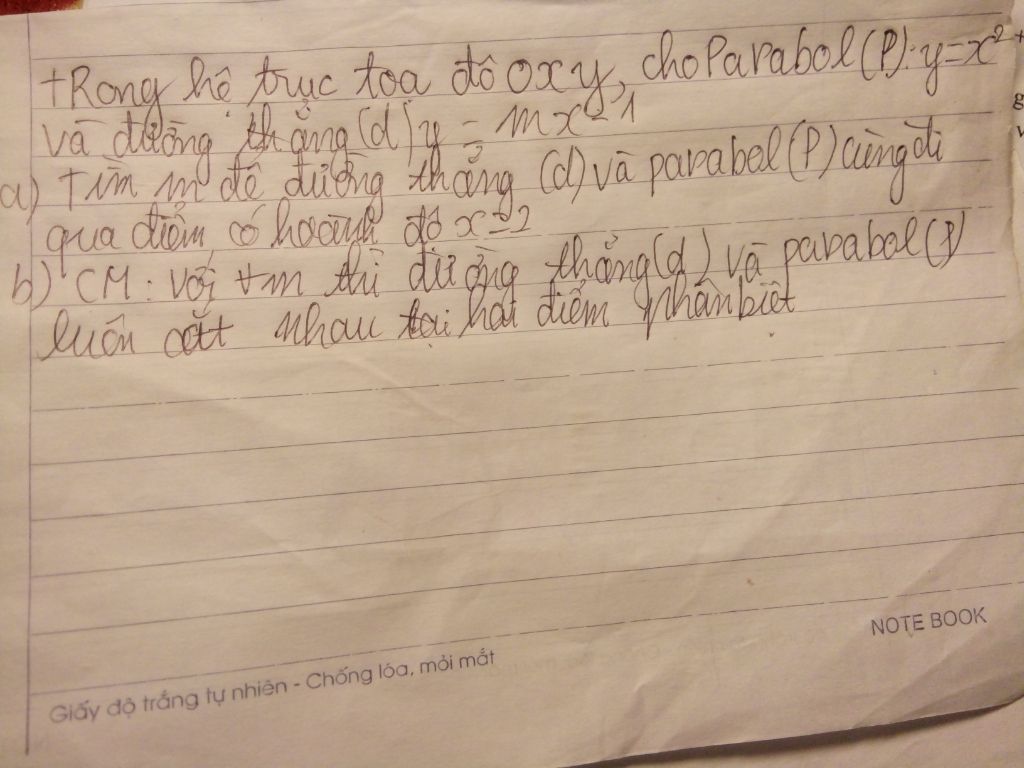 tRong hệ trục toạ độ Oxy, cho Parabol (P): y=x²
và đường thẳng (d) y = mx - 1
a) tìm m để đường thẳng (d) và parabol (P) cùng đi
qua điểm có hoành độ x=2
b) CM: với +m thì đường thẳng (d) và parabol (P)
luôn cắt nhau tại hai điểm phân biệt
NOTE BOOK
Giấy độ trắng tự nhiên - Chống lóa, mỏi mắt